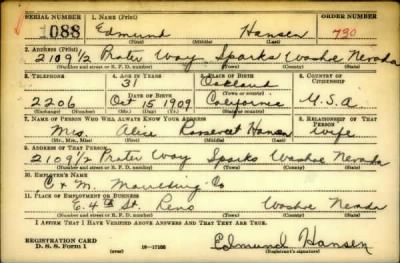 SERIAL NUMBER 1. NAME (Print) ORDER NUMBER
1088 Edmund Hansen 730
(First) (Middle) (Last)
2. ADDRESS (Print)
2109 1/2 Prater Way Sparks Washoe Nevada
(Number and street or R. F. D. number) (Town) (County) (State)
3. TELEPHONE 4. AGE IN YEARS 5. PLACE OF BIRTH 6. COUNTRY OF CITIZENSHIP
31 Oakland
DATE OF BIRTH (Town or county)
2206 Oct 15 1909 California U.S.A
(Exchange) (Number) (Mo.) (Day) (Yr.) (State or country)
7. NAME OF PERSON WHO WILL ALWAYS KNOW YOUR ADDRESS 8. RELATIONSHIP OF THAT PERSON
Mrs Alice Roosevelt Hansen wife
(Mr., Mrs., Miss) (First) (Middle) (Last)
9. ADDRESS OF THAT PERSON
2109 1/2 Prater Way Sparks Washoe Nevada
(Number and street or R. F. D. number) (Town) (County) (State)
10. EMPLOYER'S NAME
C & M. Co
11. PLACE OF EMPLOYMENT OR BUSINESS
E. 4th St. Reno Washoe Nevada
(Number and street or R. F. D. number) (Town) (County) (State)
I AFFIRM THAT I HAVE VERIFIED ABOVE ANSWERS AND THAT THEY ARE TRUE.
REGISTRATION CARD
D. S. S. Form 1 (over) 16-17105 Edmund Hansen
(Registrant's signature)